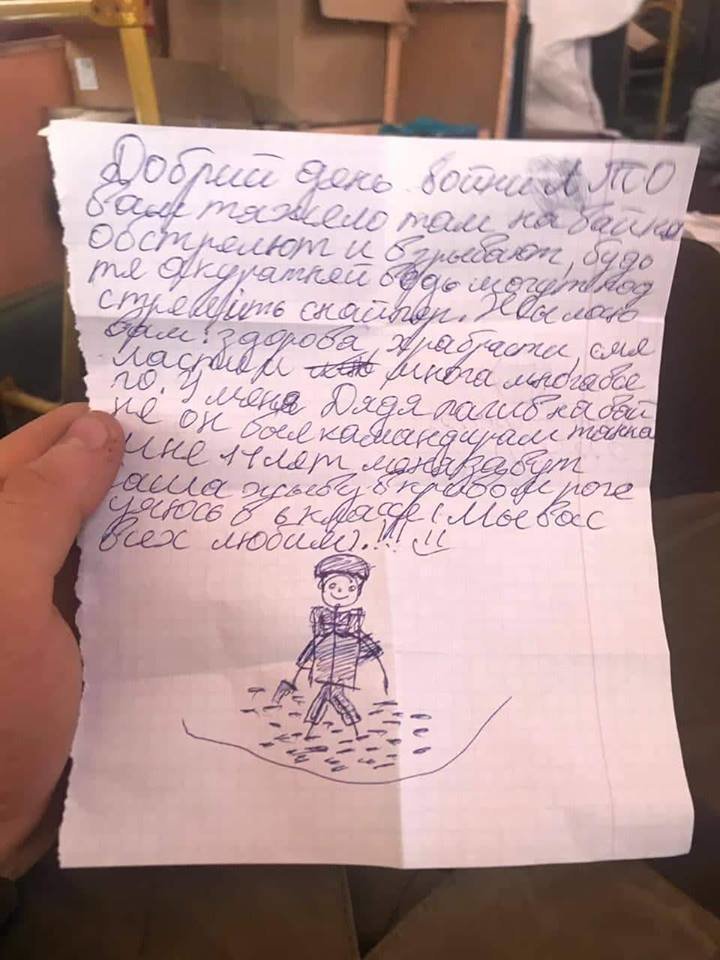 Добрий день войни АТО
вам тяжело там на вайне
обстрелют и взрывают, будь
тя окуратней ведь могут под
стрелить снайпер. Жылаю
вам: здорова, храбрасти, сме
ласти и многа многа все
го. У меня Дядя пагиб на вай
не он был камандирам танка
мне 11 лет меня завут
жыву в кривом роге
учюсь в 6 класе! Мы вас
всех любим.!!!